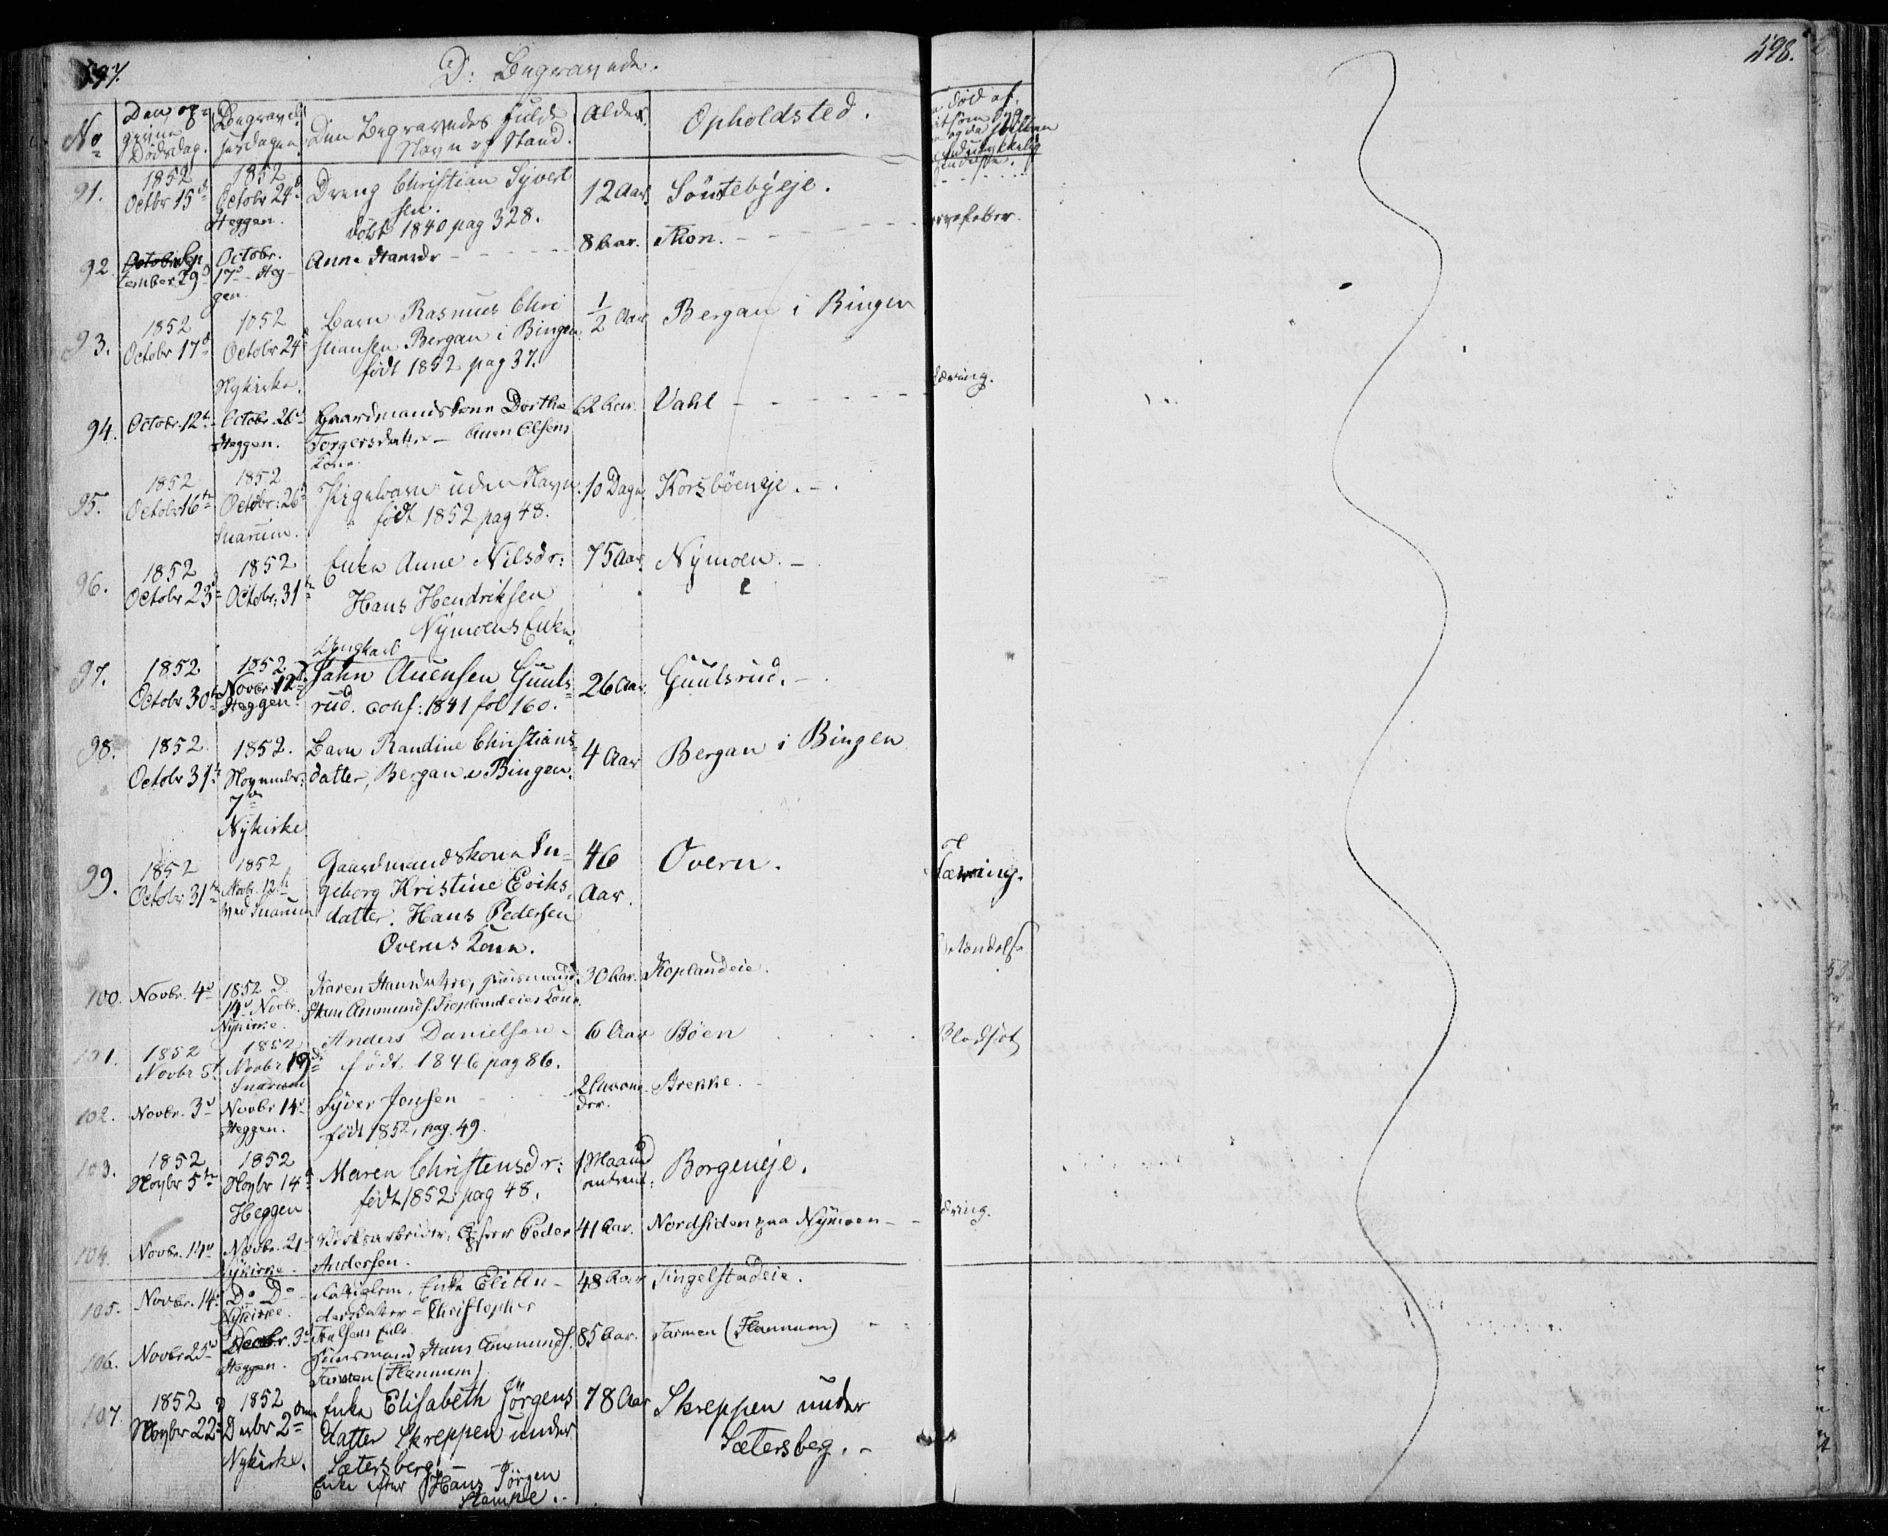 597.
D: Begravede.
598.
No
Den op-
givne
Dødsdag.
Begravel
sesdagen
Den Begravedes fulde
Navn og Stand.
Alder.
Opholdsted.
død af
91. 1852 Octbr 15d 1852 Octobr 24d Heggen. Dreng Christian Syvert
sen.
døbt 1840 pag 328. 12 Aar Søntebyeje.
92. September 29d Octobr. 17d Heg-
gen. Anne Hansdr 8 Aar. Thon.
93. 1852 Octobr 17d 1852 Octobr 24d Nykirke. Barn Rasmus Chri
stiansen Bergan i Bingen
født 1852 pag 37. 1/2 Aar Bergan i Bingen
94. Octobr. 12t Octobr. 26d Heggen. Gaardmandskone Dorthe
Torgersdatter - Auen Olsens
Kone. 62 Aar. Vahl
95. 1852 Octobr 16te 1852 Octobr: 26d Snarum. Pigebarn uden Navn
født 1852 pag 48. 10 Dage Korsbøeneje.
96. 1852 Octobr 23d 1852 Octobr: 31te Enke Anne Nilsdr:
Hans Hendriksen
Nymoens Enke. 75 Aar. Nymoen.
97. 1852 Octobr 30te 1852 Novbr. 12te Heggen Ungkarl
Jahn Auensen Guuls-
rud. conf: 1841 fol 160. 26 Aar. Guulsrud.
98. 1852 Octobr 31te 1852. Novembr. 7de Nykirke Barn Randine Christians-
datter, Bergan i Bingen. 4 Aar Bergan i Bingen
99. 1852 Octobr 31te 1852 Novb. 12te ved Snarum Gaardmandskone In-
geborg Kristine Eriks-
datter. Hans Pedersen
Overns Kone. 46
Aar. Overn.
100. Novbr. 4d 1852 D. 14d Novbr. Nykirke. Karen Hansdatter, Huusmand
Hans Ammunds. Koplandeies Kone. 30 Aar. Koplandeie.
101. 1852 Novbr 5t 1852 Novbr 19d Snarum Anders Danielsen
født 1846 pag 86. 6 Aar Bøen Blodsot
102. Novbr. 3d Novbr 14d Heggen. Syver Jonsen
født 1852, pag. 49. 2 Maane-
der. Brekke.
103. 1852 Novbr 5te 1852 Novbr 14d Heggen Maren Christensdr:
født 1852 pag 48. 1 Maaned
omtrent: Borgeneje.
104. Novbr. 14d Novbr. 21d Nykirke. Værksarbeider, Peder
Andersen. 41 Aar. Nordsiden paa Nymoen
105. Novbr. 14d Do Do Nykirke. Enke Eli An-
dersdatter - Christopher
Enke 48 Aar Tingelstadeie.
106. Novbr 25d Decbr. 3d Heggen. Huusmand Hans Ammunds.
Tarmen (Flannum) 85 Aar. Tarmen (Flannum)
107. 1852 Novbr 22d 1852 Decbr 2den Nykirke. Enke Elisabeth Jørgens
datter Skreppen under
Sætersberg.
Enke efter Hans Jørgen
Stampe. 78 Aar Skreppen under
Sætersbeg.